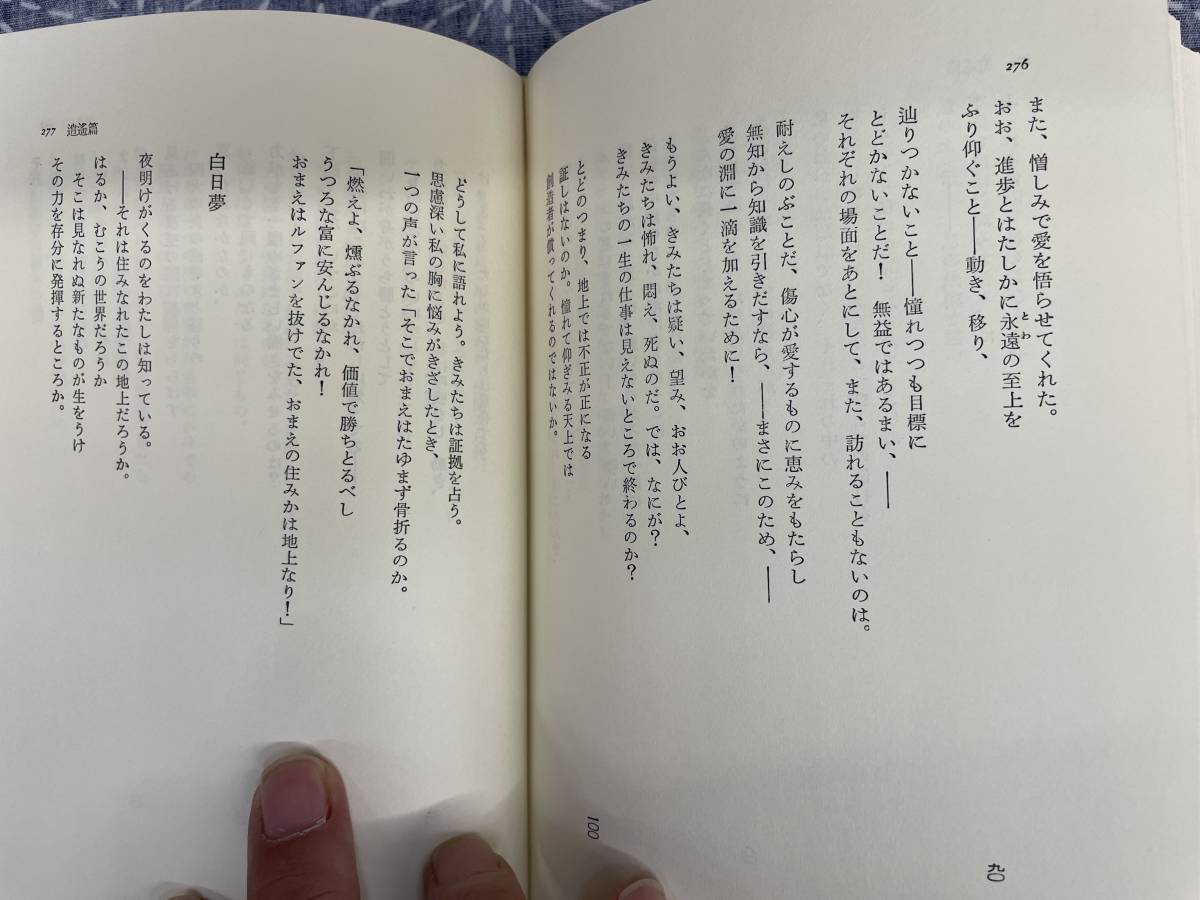 276
また、憎しみで愛を悟らせてくれた。
おお、進歩とはたしかに永遠の至上を
とわ
ふり仰ぐこと――動き、移り、
辿りつかないこと――憧れつつも目標に
とどかないことだ！　無益ではあるまい、――
それぞれの場面をあとにして、また、訪れることもないのは。
耐えしのぶことだ、傷心が愛するものに恵みをもたらし
無知から知識を引きだすなら、――まさにこのため、――
愛の淵に一滴を加えるために！
もうよい、きみたちは疑い、望み、おお人びとよ、
きみたちは怖れ、悶え、死ぬのだ。では、なにが？
きみたちの一生の仕事は見えないところで終わるのか？
とどのつまり、地上では不正が正になる
証しはないのか。憧れて仰ぎみる天上では
創造者が償ってくれるのではないか。
九〇
100
277 逍遥篇
どうして私に語れよう。きみたちは証拠を占う。
思慮深い私の胸に悩みがきざしたとき、
一つの声が言った「そこでおまえはたゆまず骨折るのか。
「燃えよ、燻ぶるなかれ、価値で勝ちとるべし
うつろな富に安んじるなかれ！
おまえはルファンを抜けでた、おまえの住みかは地上なり！」
白日夢
夜明けがくるのをわたしは知っている。
――それは住みなれたこの地上だろうか。
はるか、むこうの世界だろうか
そこは見なれぬ新たなものが生をうけ
その力を存分に発揮するところか。